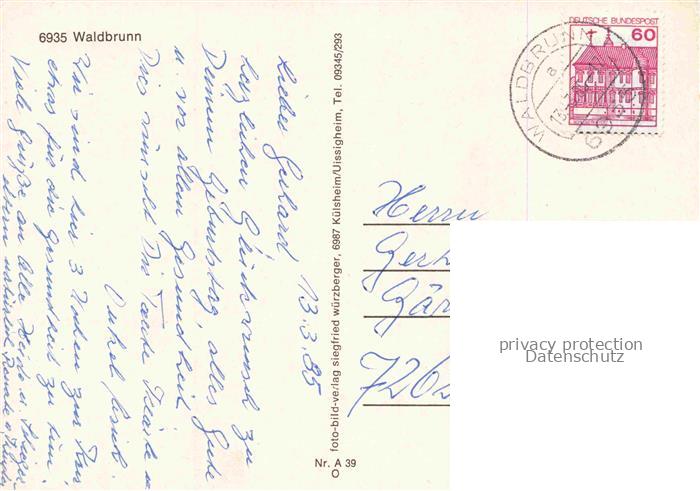 6935 Waldbrunn
13.3.85
Lieber Gerhard
herzlichen Glückwunsch zu
Deinem Geburtstag, alles Gute
u. vor allem Gesundheit
Dies wünscht Dir Tante
Onkel
Wir sind hier 3 Wochen zur Kur
etwas für die Gesundheit zu tun.
Viele Grüße an alle Heide u.
Eltern natürlich
foto-bild-verlag siegfried würzberger, 6987 Külsheim/Uissigheim, Tel. 09345/293
Nr. A 39
O
DEUTSCHE BUNDESPOST
60
WALDBRUNN
a
6935
Herrn
Gerh
Gär
7262
privacy protection
Datenschutz